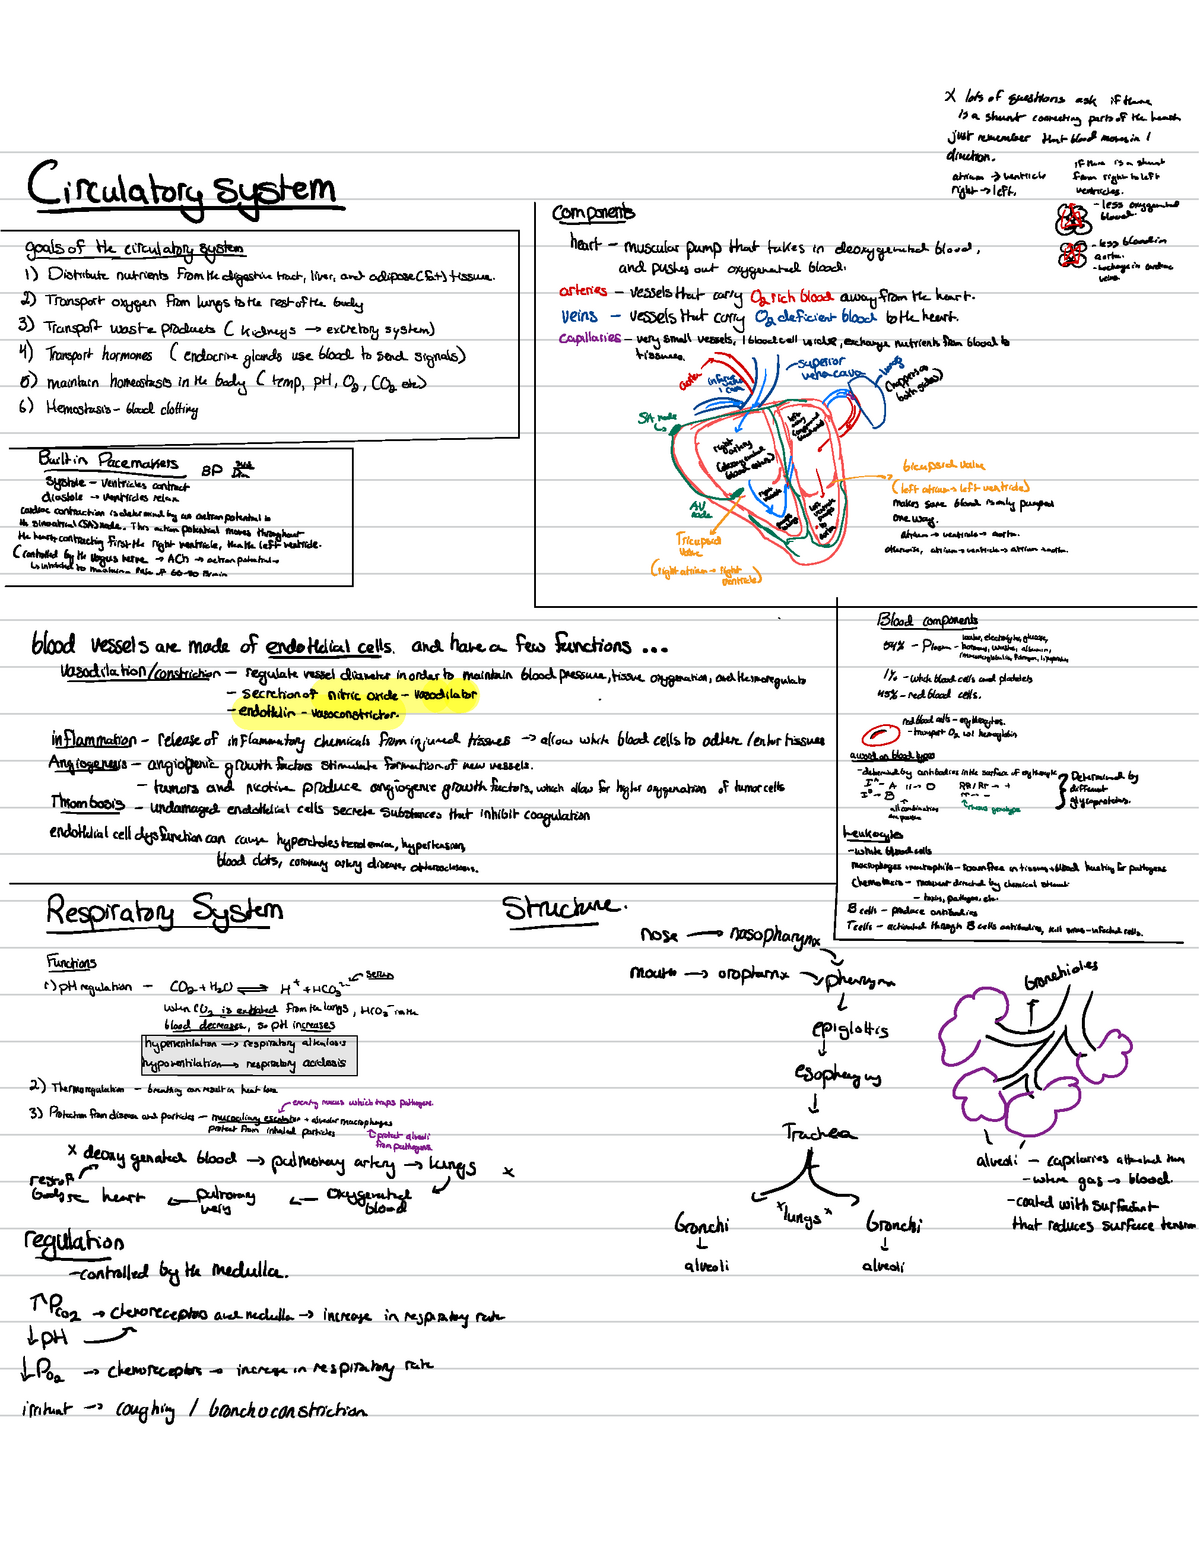 x lots of questions ask if there
is a shunt connecting parts of the heart
just remember that blood moves in 1
direction.
atrium → ventricle
right → left.
if there is a shunt
from right to left
ventricles.
- less oxygenated
blood.
- less blood in
aorta.
Circulatory system
goals of the circulatory system
1) Distribute nutrients from the digestive tract, liver, and adipose (fat) tissue.
2) Transport oxygen from lungs to the rest of the body
3) Transport waste products (kidneys → excretory system)
4) Transport hormones (endocrine glands use blood to send signals)
5) maintain homeostasis in the body (temp, pH, O2, CO2 etc)
6) Hemostasis - blood clotting
Built in Pacemakers
BP
systole - ventricles contract
diastole → ventricles relax
cardiac contraction is determined by an action potential in
the sinoatrial (SA) node. This action potential moves throughout
the heart contracting first the right ventricle, then the left ventricle.
(controlled by the vagus nerve → ACh → action potential →
Components
heart - muscular pump that takes in deoxygenated blood,
and pushes out oxygenated blood.
arteries - vessels that carry O2 rich blood away from the heart.
veins - vessels that carry O2 deficient blood to the heart.
capillaries - very small vessels, 1 blood cell wide, exchange nutrients from blood to
tissues.
aorta
superior
vena cava
lungs
(happens on
both sides)
SA node
AV
node
Tricuspid
Valve
(right atrium → right
ventricle)
bicuspid valve
(left atrium → left ventricle)
makes sure blood is only pumped
one way.
atrium → ventricle → aorta.
otherwise, atrium → ventricle → atrium aorta.
blood vessels are made of endothelial cells. and have a few functions ...
Vasodilation/constriction - regulate vessel diameter in order to maintain blood pressure, tissue oxygenation, and thermoregulate
- secretion of nitric oxide - vasodilator
- endothelin - vasoconstrictor.
inflammation - release of inflammatory chemicals from injured tissues → allow white blood cells to adhere/enter tissues
Angiogenesis - angiogenic growth factors stimulate formation of new vessels.
- tumors and nicotine produce angiogenic growth factors, which allow for higher oxygenation of tumor cells
Thrombosis - undamaged endothelial cells secrete substances that inhibit coagulation
endothelial cell dysfunction can cause hypercholesterolemia, hypertension,
blood clots, coronary artery disease, atherosclerosis.
Blood components
54% - Plasma - water, electrolytes, glucose,
hormones, wastes, albumin,
1% - white blood cells and platelets
45% - red blood cells.
red blood cells - erythrocytes.
- transport O2 w/ hemoglobin
blood types
- determined by antibodies in the surface of erythrocyte
Determined by
different
glycoproteins.
Leukocytes
- white blood cells
macrophages + neutrophils - roam free in tissues + blood hunting for pathogens
Chemotaxis - movement directed by chemical stimuli
- toxins, pathogens, etc.
B cells - produce antibodies
T cells - activated through B cells antibodies, kill virus-infected cells.
Respiratory System
Functions
1) pH regulation - CO2 + H2O ⇌ H+ + HCO3-
when CO2 is exhaled from the lungs, HCO3- in the
blood decreases, so pH increases
hyperventilation → respiratory alkalosis
hypoventilation → respiratory acidosis
2) Thermoregulation - breathing can result in heat loss
3) Protection from disease and particles - mucociliary escalator + alveolar macrophages
protect from inhaled particles
mucus which traps pathogens.
protect alveoli
from pathogens
x deoxygenated blood → pulmonary artery → lungs x
rest of
body ← heart ← pulmonary ← oxygenated
blood
regulation
- controlled by the medulla.
↑PCO2 → chemoreceptors and medulla → increase in respiratory rate
↓pH
↓PO2 → chemoreceptors → increase in respiratory rate
irritant → coughing / bronchoconstriction
Structure.
nose → nasopharynx
mouth → oropharnx → pharynx
↓
epiglottis
↓
esophagus
↓
Trachea
bronchi "lungs" bronchi
↓ ↓
alveoli alveoli
bronchioles
alveoli - capillaries attached
- where gas → blood.
- coated with surfactant
that reduces surface tension